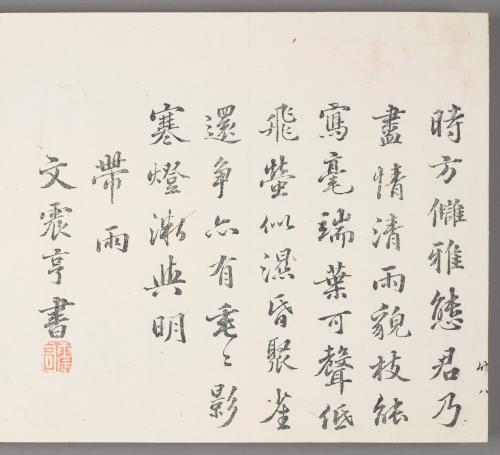 時方讎雅態君乃
盡情清雨貌枝能
寫毫端葉可聲低
飛螢似濕昏聚雀
還爭亦有垂〻影
寒燈漸與明
帶雨
文震亨書
竹八